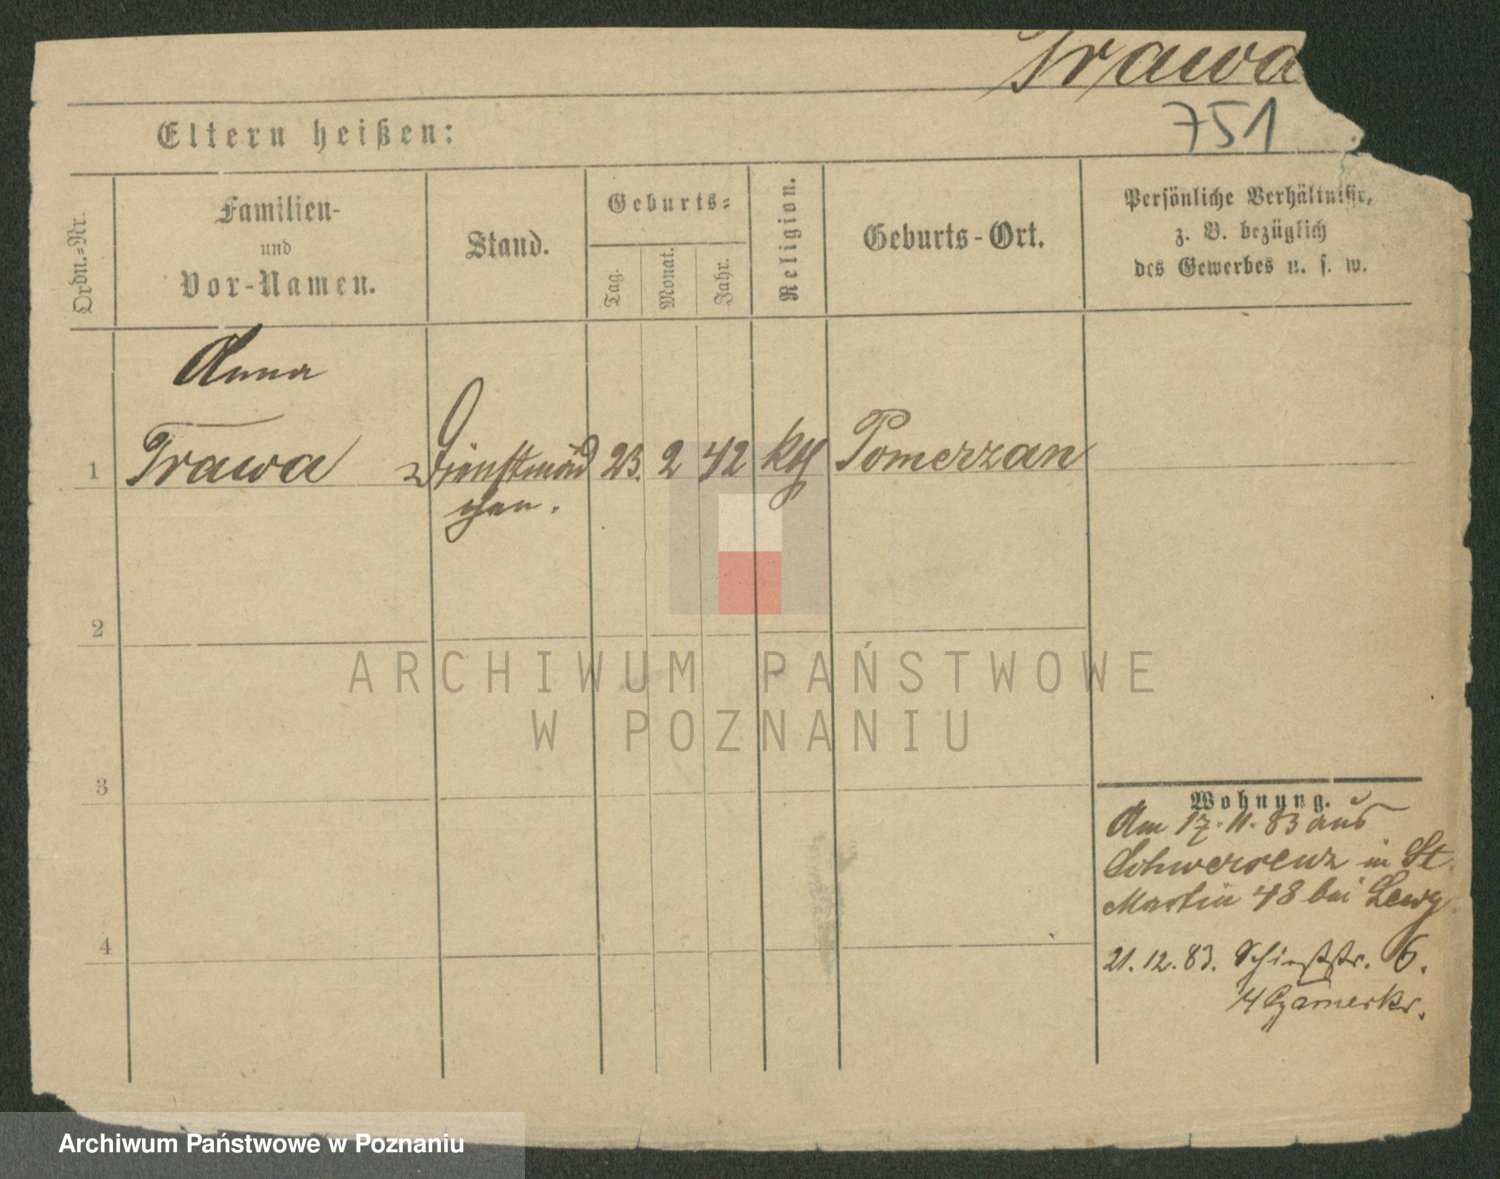 Trawa
751
Eltern heißen:
Ordn.-Nr.
Familien-
und
Vor-Namen.
Stand.
Geburts-
Tag.
Monat.
Jahr.
Religion.
Geburts-Ort.
Persönliche Verhältnisse,
z. B. bezüglich
des Gewerbes u. s. w.
Anna
1 Trawa Dienstmäd 23. 2 42 kth Pomerzan
chen.
2
3
4
Wohnung.
Am 17. 11. 83 aus
Schwersenz in St.
Martin 48 bei
21. 12. 83. Schießstr. 6.
ARCHIWUM PAŃSTWOWE
W POZNANIU
Archiwum Państwowe w Poznaniu